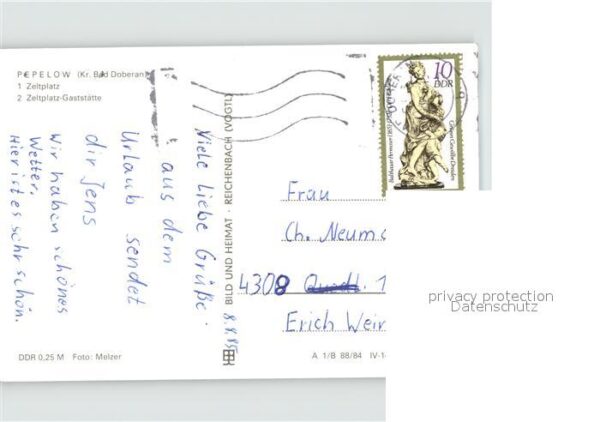 PEPELOW (Kr. Bad Doberan)
1 Zeltplatz
2 Zeltplatz-Gaststätte
Viele liebe Grüße
aus dem
Urlaub sendet
dir Jens
Wir haben schönes
Wetter.
Hier ist es sehr schön.
8.8.85
BILD UND HEIMAT · REICHENBACH (VOGTL)
10
DDR
Grünes Gewölbe Dresden
Balthasar Permoser
Frau
Ch. Neuma
4308 Quedl. 1
Erich Wein
privacy protection
Datenschutz
DDR 0,25 M Foto: Melzer
A 1/B 88/84 IV-1